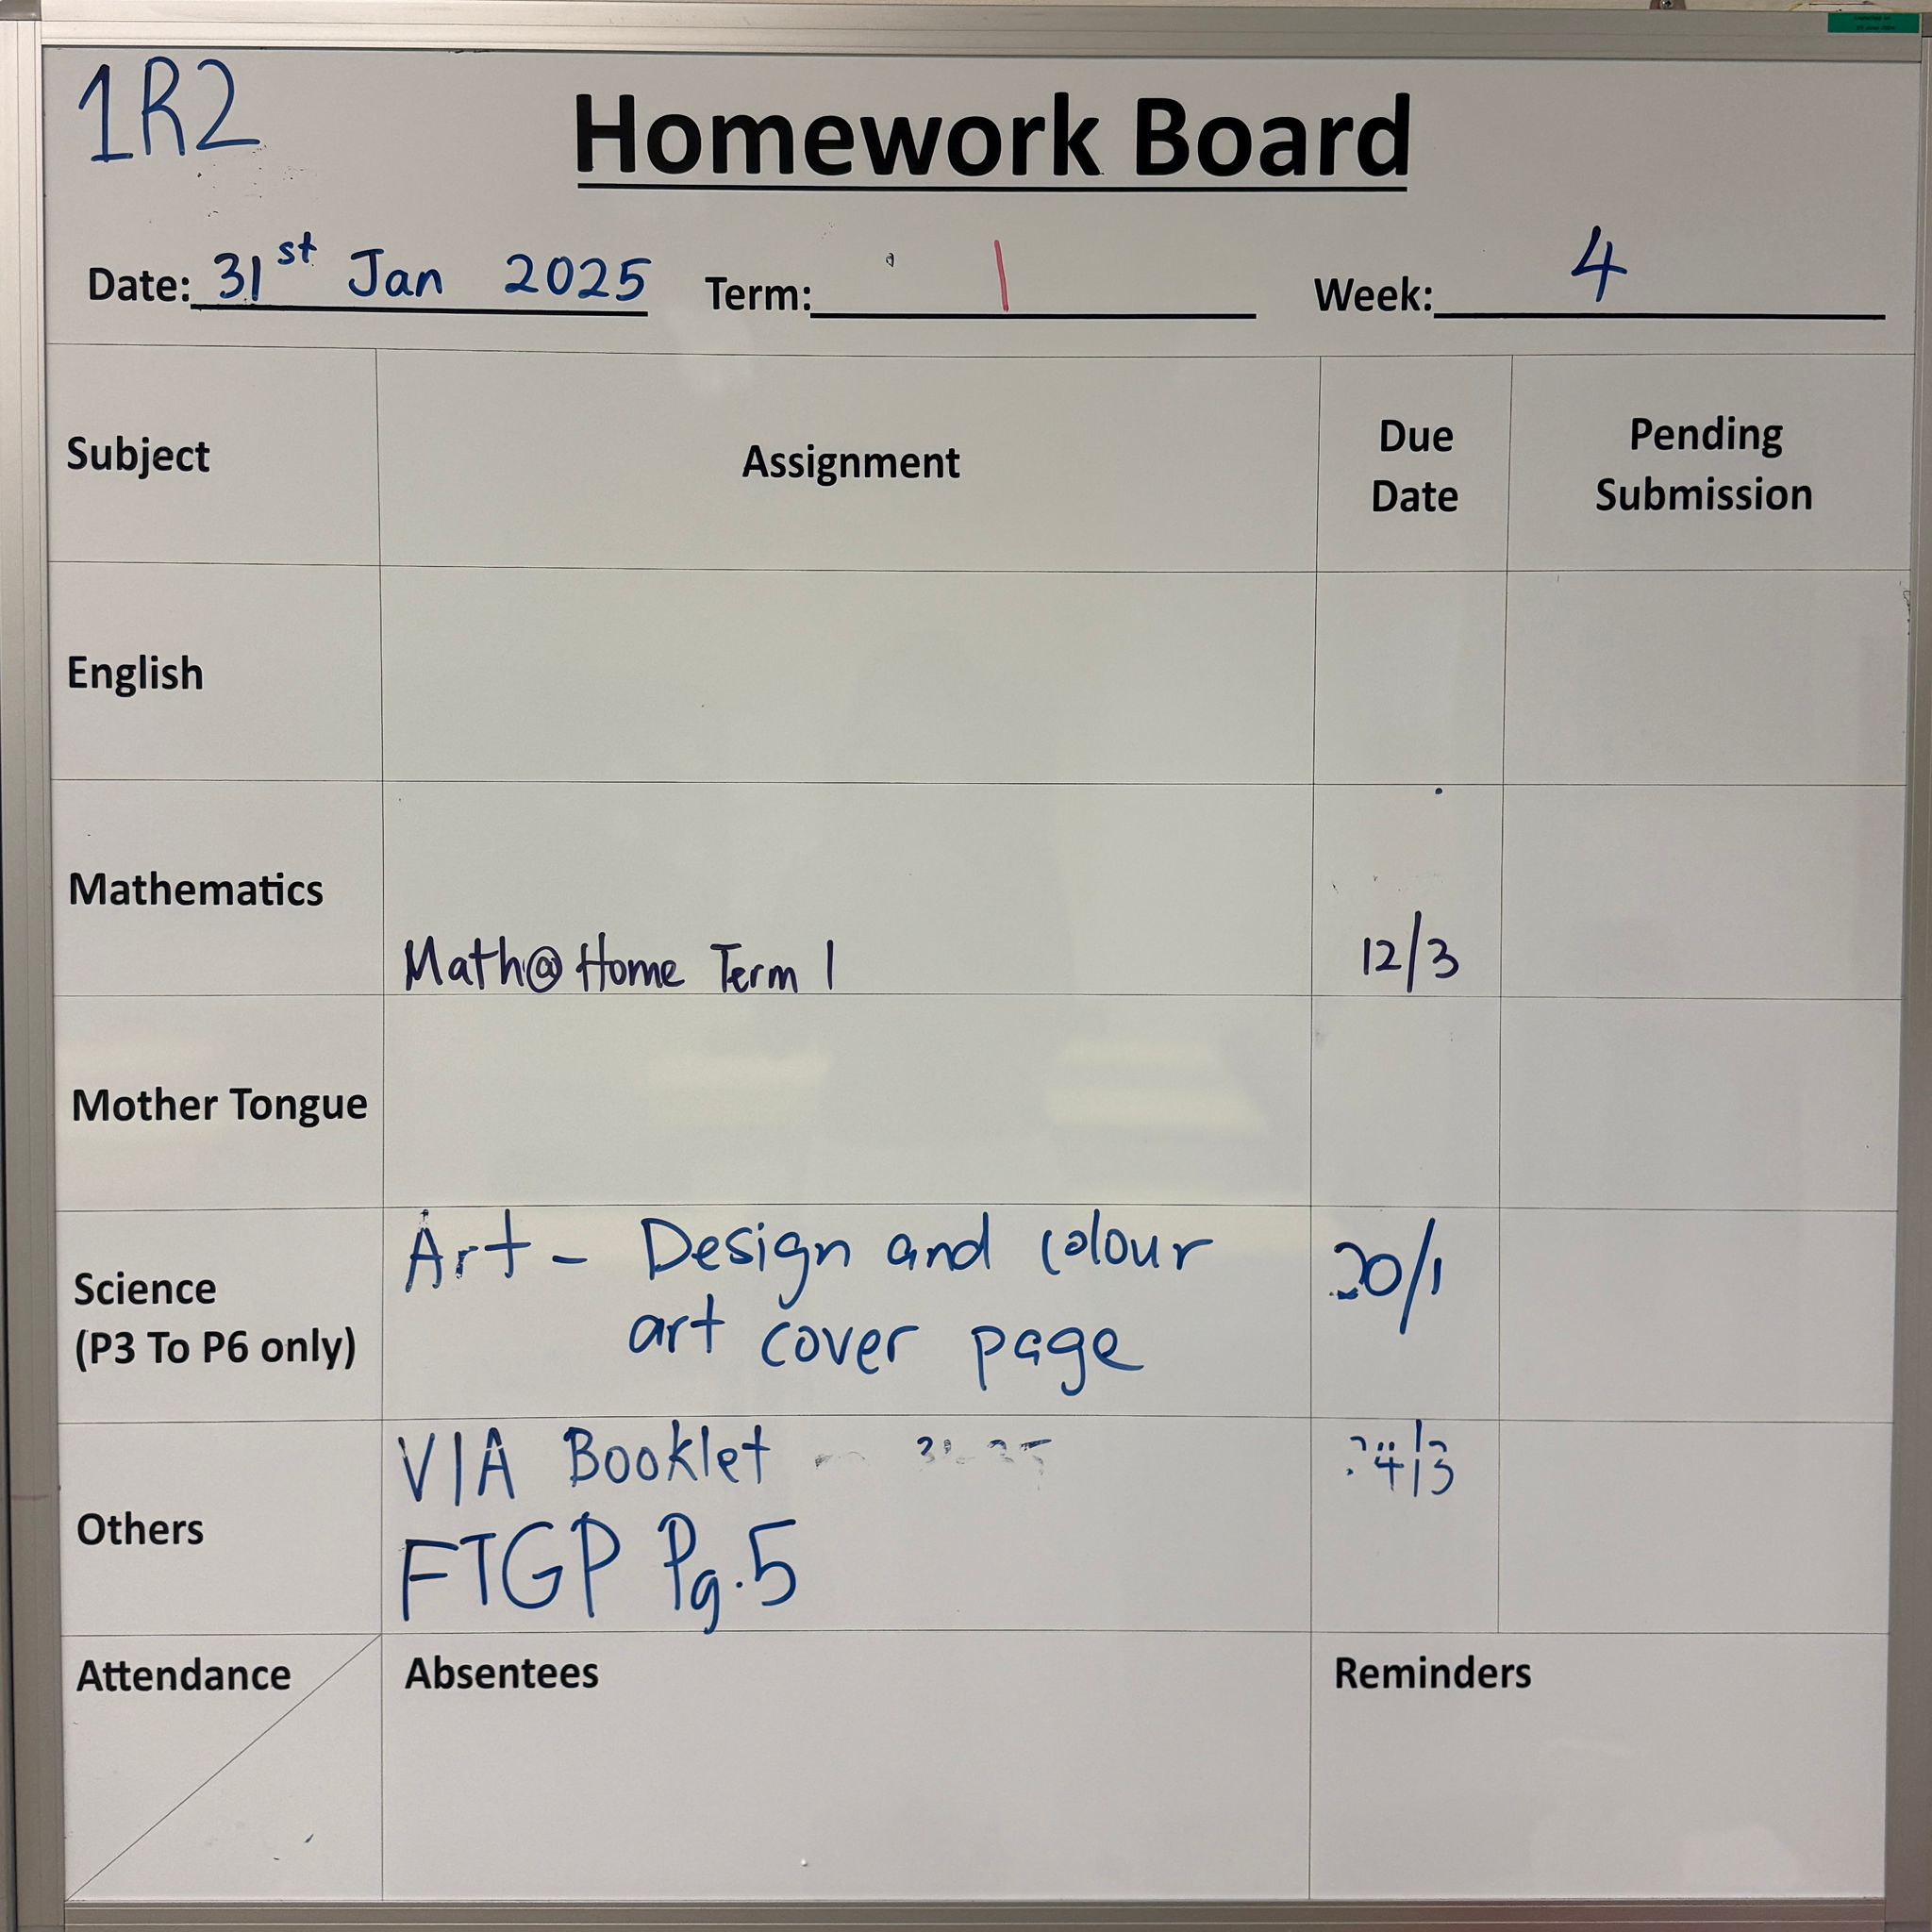 1R2
Homework Board
Date: 31st Jan 2025 Term: 1 Week: 4
Subject Assignment Due Date Pending Submission
English
Mathematics
Math@Home Term 1 12/3
Mother Tongue
Science (P3 To P6 only)
Art - Design and colour 20/1
art cover page
Others
VIA Booklet
FTGP Pg.5
Attendance Absentees Reminders